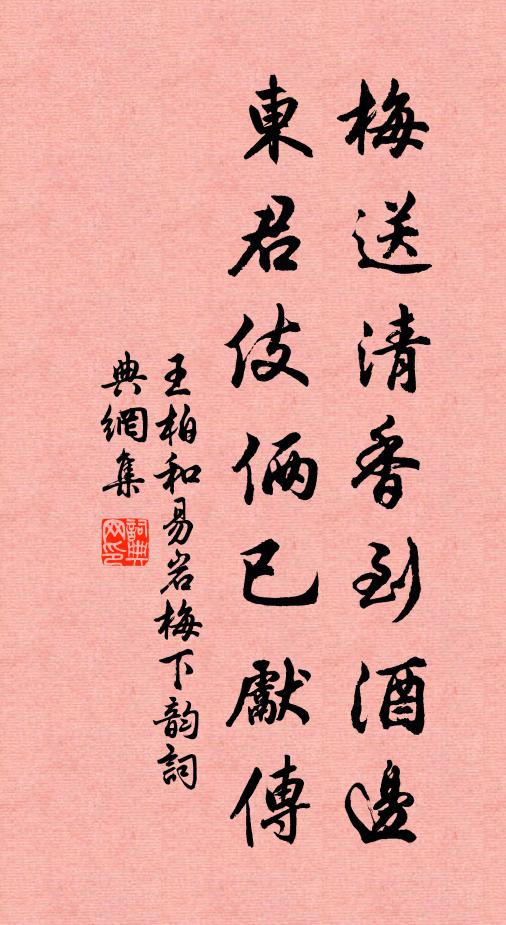 梅送清香到酒邊
東君伎倆已獻傳
王柏和易岩梅下韵詞
典網集
詞典网印